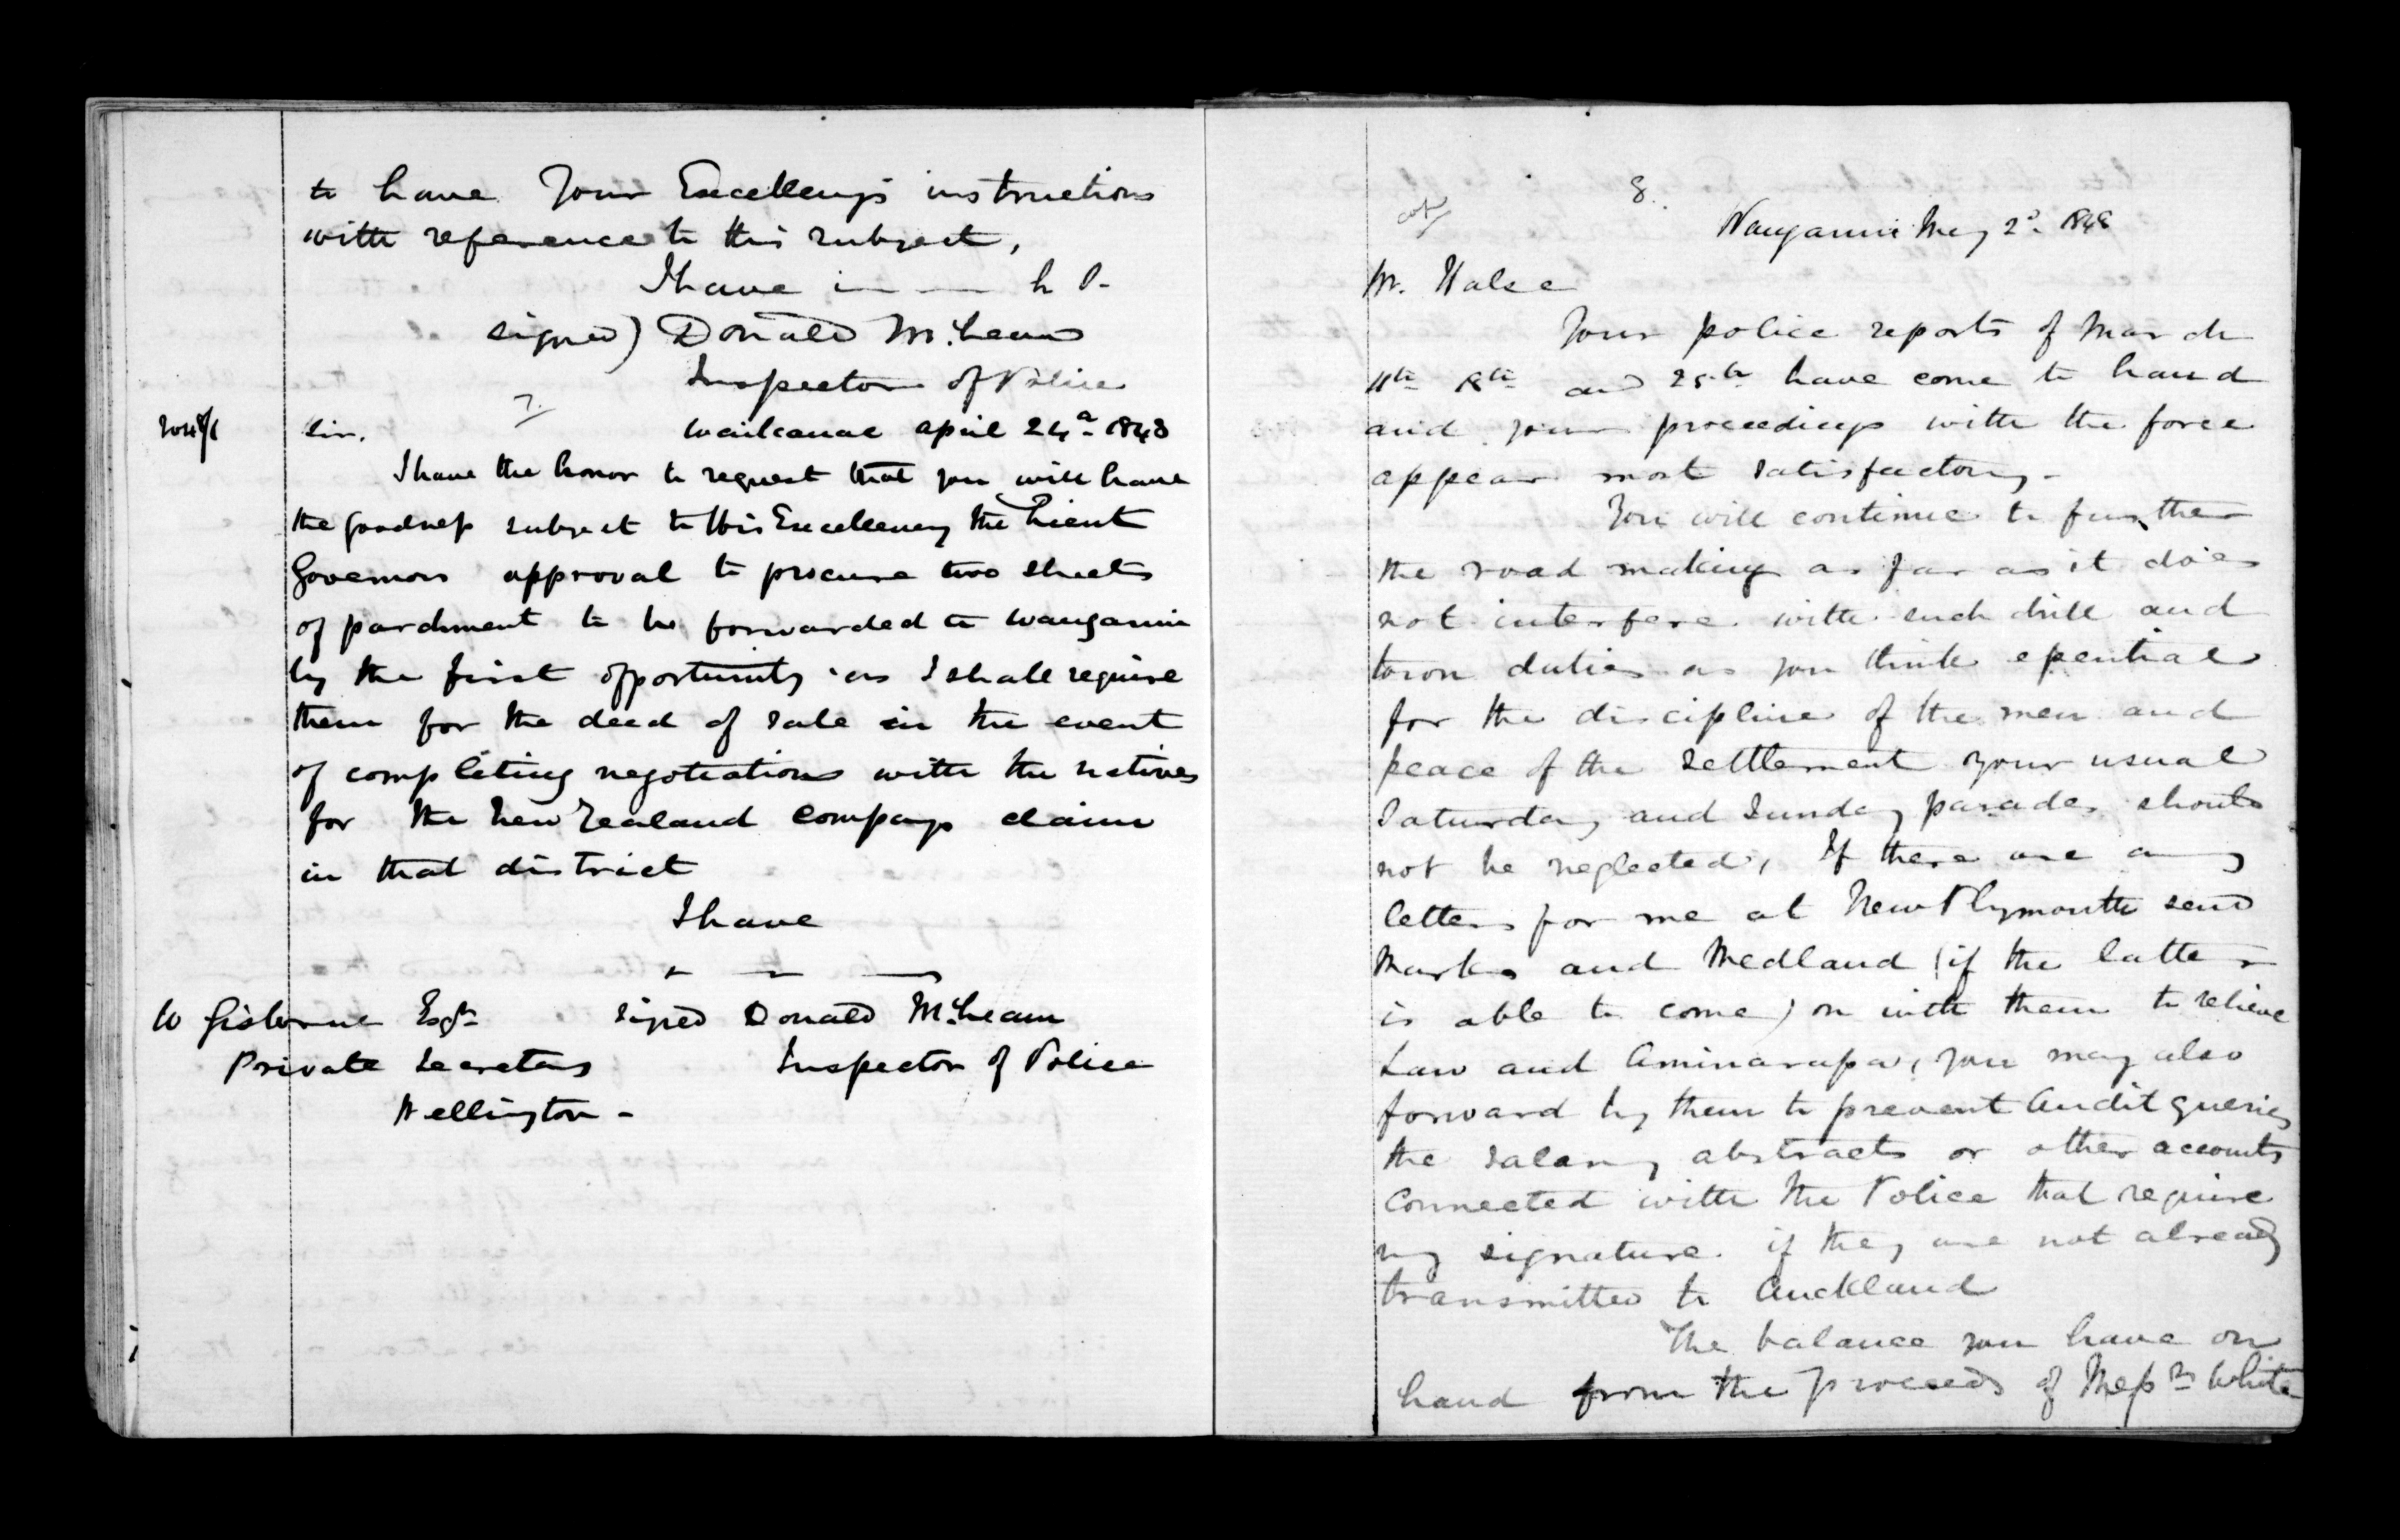 to have Your Excellency's instructions
with reference to this subject,
I have
signed) Donald McLean
Inspector of Police
7
Sir. Waikanae April 24th 1848
I have the honor to request that you will have
the goodness subject to His Excellency the Lieut
Governors approval to procure two sheets
of parchment to be forwarded to Wanganui
by the first opportunity as I shall require
them for the deed of sale in the event
of completing negotiations with the natives
for the New Zealand Companys claim
in that district
I have
W Gisborne Esqre signed Donald McLean
Private Secretary Inspector of Police
Wellington -
8.
Wanganui May 2d 1848
Mr. Halse
Your police reports of March
11th 18th and 25th have come to hand
and your proceedings with the force
appear most satisfactory -
You will continue to further
the road making as far as it does
not interfere with such drill and
town duties as you think essential
for the discipline of the men and
peace of the settlement your usual
Saturday and Sunday parades should
not be neglected, If there are any
letters for me at New Plymouth send
Marks and Medland (if the latter
is able to come) on with them to relieve
Law and Aminarapa, you may also
forward by them to prevent Audit queries
the salary abstracts or other accounts
connected with the Police that require
my signature. if they are not already
transmitted to Auckland
The balance you have on
hand from the proceeds of Messrs White